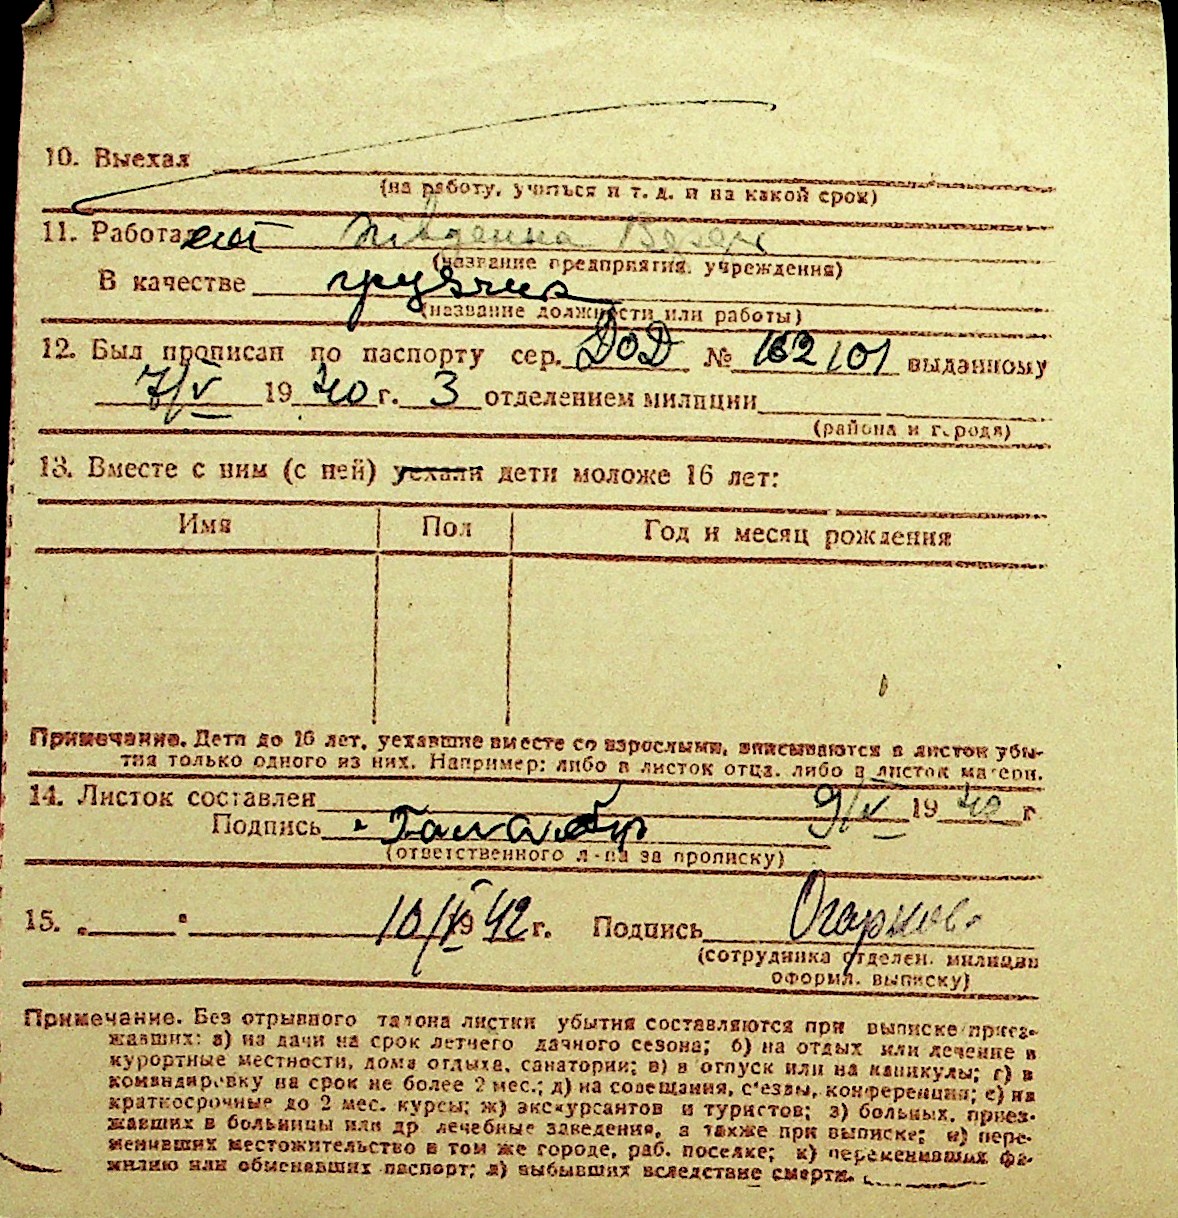 10. Выехал
(на работу, учиться и т. д. и на какой срок)
11. Работает
(название предприятия, учреждения)
В качестве грузчик
(название должности или работы)
12. Был прописан по паспорту сер. ДОД № 162101 выданному
7/V 1940 г. 3 отделением милиции
(района и города)
13. Вместе с ним (с ней) уехали дети моложе 16 лет:
Имя Пол Год и месяц рождения
Примечание. Дети до 16 лет, уехавшие вместе со взрослыми, вписываются в листок убы-
тия только одного из них. Например: либо в листок отца, либо в листок матери.
14. Листок составлен 9/V 1940 г
Подпись
(ответственного л-ца за прописку)
15. „ " 10/IV 1942 г. Подпись
(сотрудника отделен. милиции
оформл. выписку)
Примечание. Без отрывного талона листки убытия составляются при выписке приез-
жавших: а) на дачи на срок летнего дачного сезона; б) на отдых или лечение в
курортные местности, дома отдыха, санатории; в) в отпуск или на каникулы; г) в
командировку на срок не более 2 мес.; д) на совещания, с'езды, конференции; е) на
краткосрочные до 2 мес. курсы; ж) экскурсантов и туристов; з) больных, приез-
жавших в больницы или др лечебные заведения, а также при выписке; и) пере-
менивших местожительство в том же городе, раб. поселке; к) переменивших фа-
милию или обменявших паспорт; л) выбывших вследствие смерти.